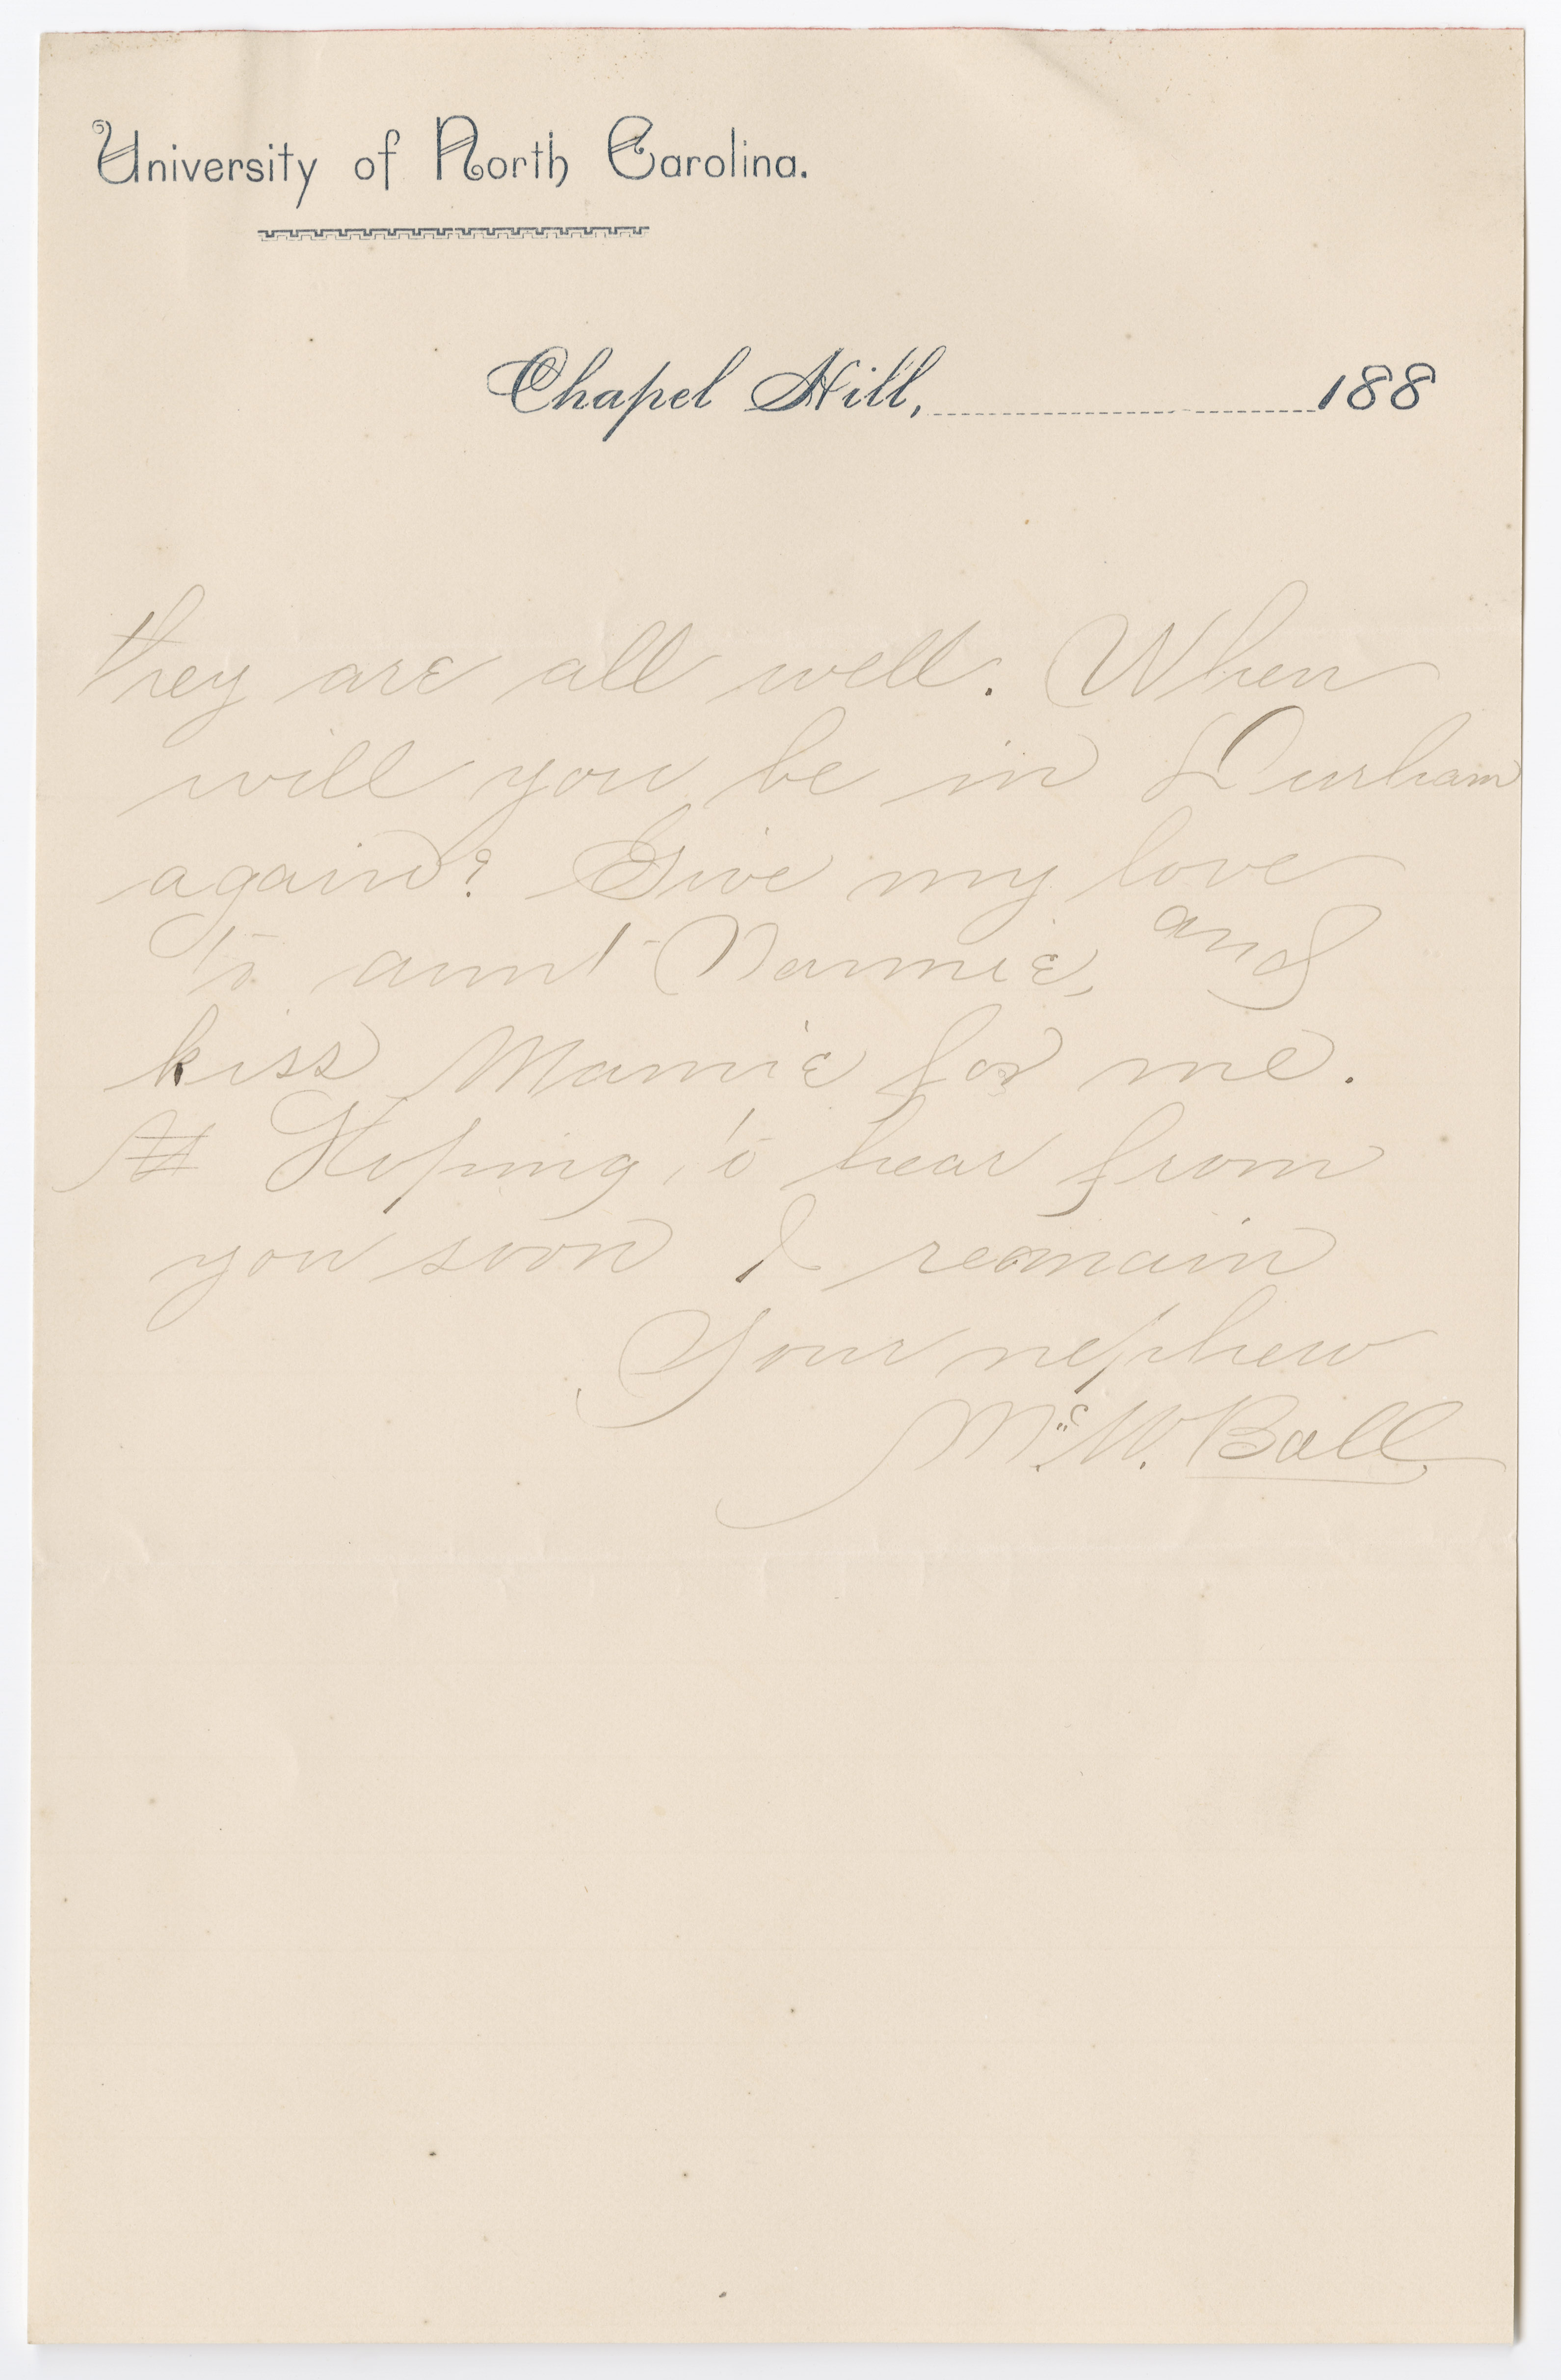 University of North Carolina.
Chapel Hill, 188
they are all well. When
will you be in Durham
again? Give my love
to aunt Nannie, and
kiss Mamie for me.
Hoping to hear from
you soon I remain
Your nephew
Mc. W. Ball